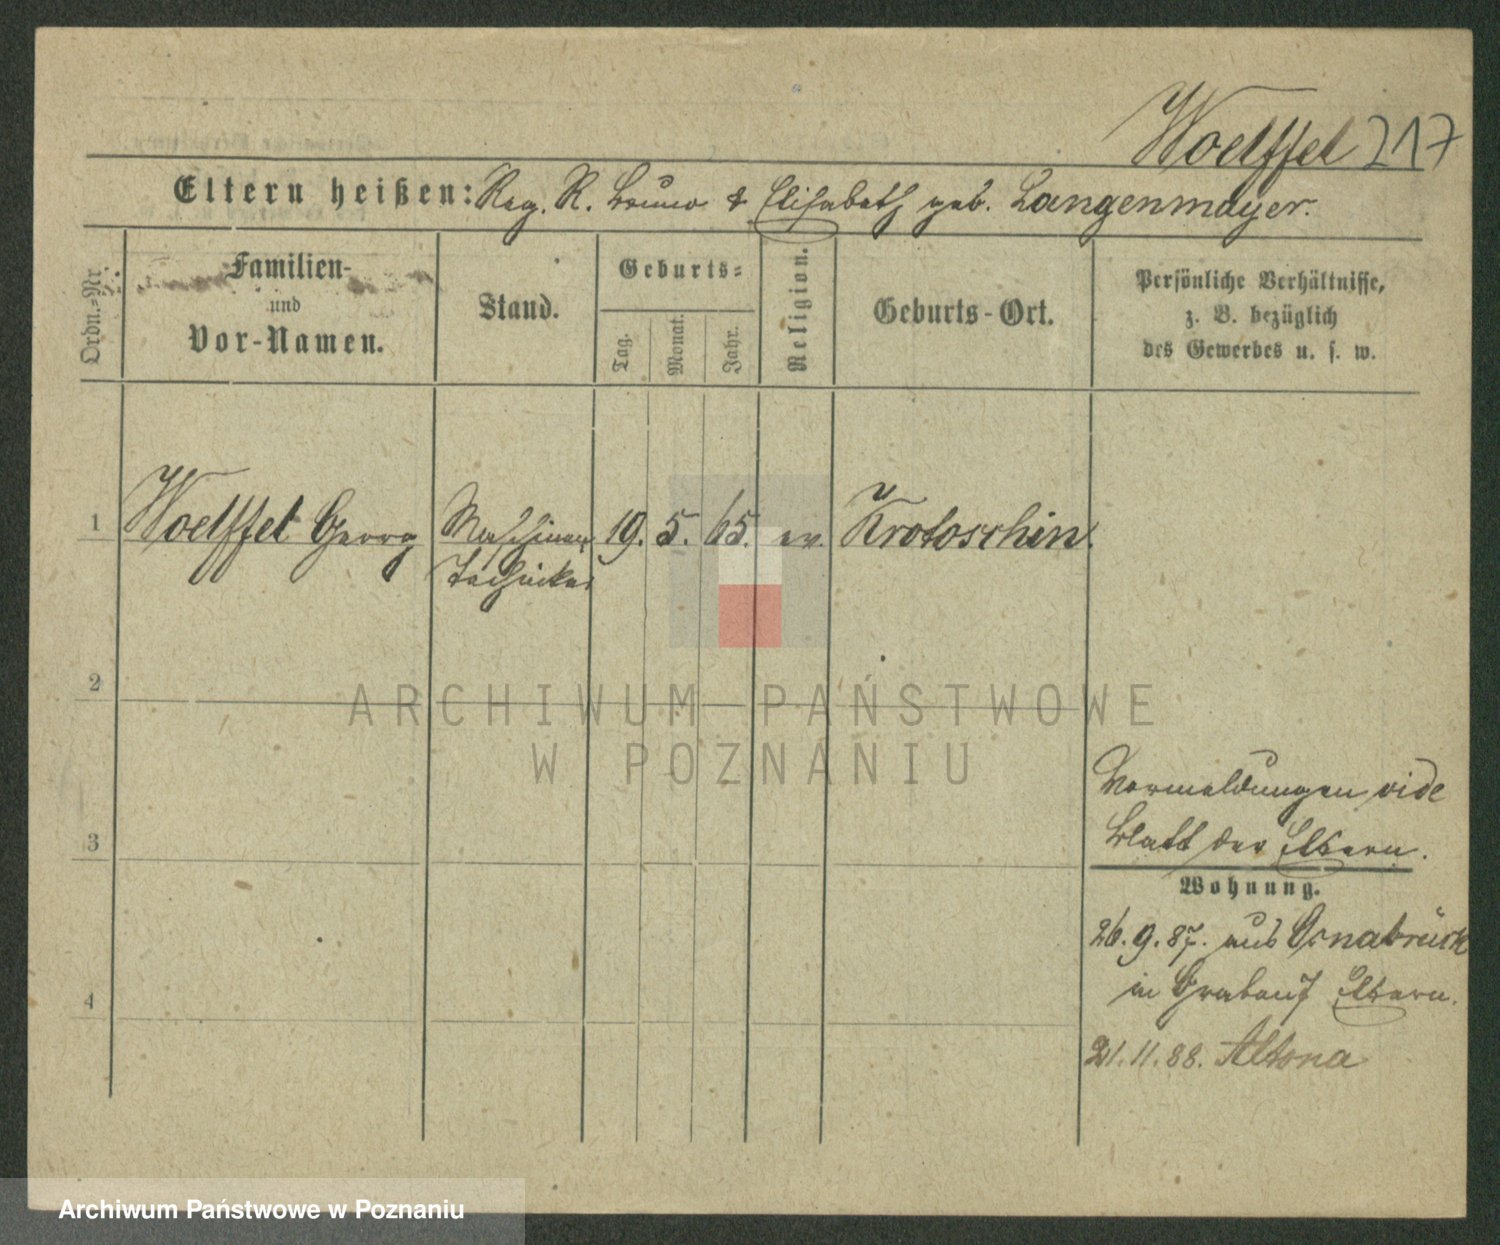 Woelffel 217
Eltern heißen: Reg. R. Bruno & Elisabeth geb. Langenmayer.
Ordn.-Nr.
Familien-
und
Vor-Namen.
Stand.
Geburts-:
Tag.
Monat.
Jahr.
Religion.
Geburts-Ort.
Persönliche Verhältnisse,
z. B. bezüglich
des Gewerbes u. s. w.
1 Woelffel Georg Maschinen 19. 5. 65. ev. Krotoschin.
Techniker
2
ARCHIWUM PAŃSTWOWE
W POZNANIU
Vormeldungen vide
3 Blatt der Eltern.
Wohnung.
26.9.87. aus Osnabrück
4 in Eltern.
21.11.88. Altona
Archiwum Państwowe w Poznaniu